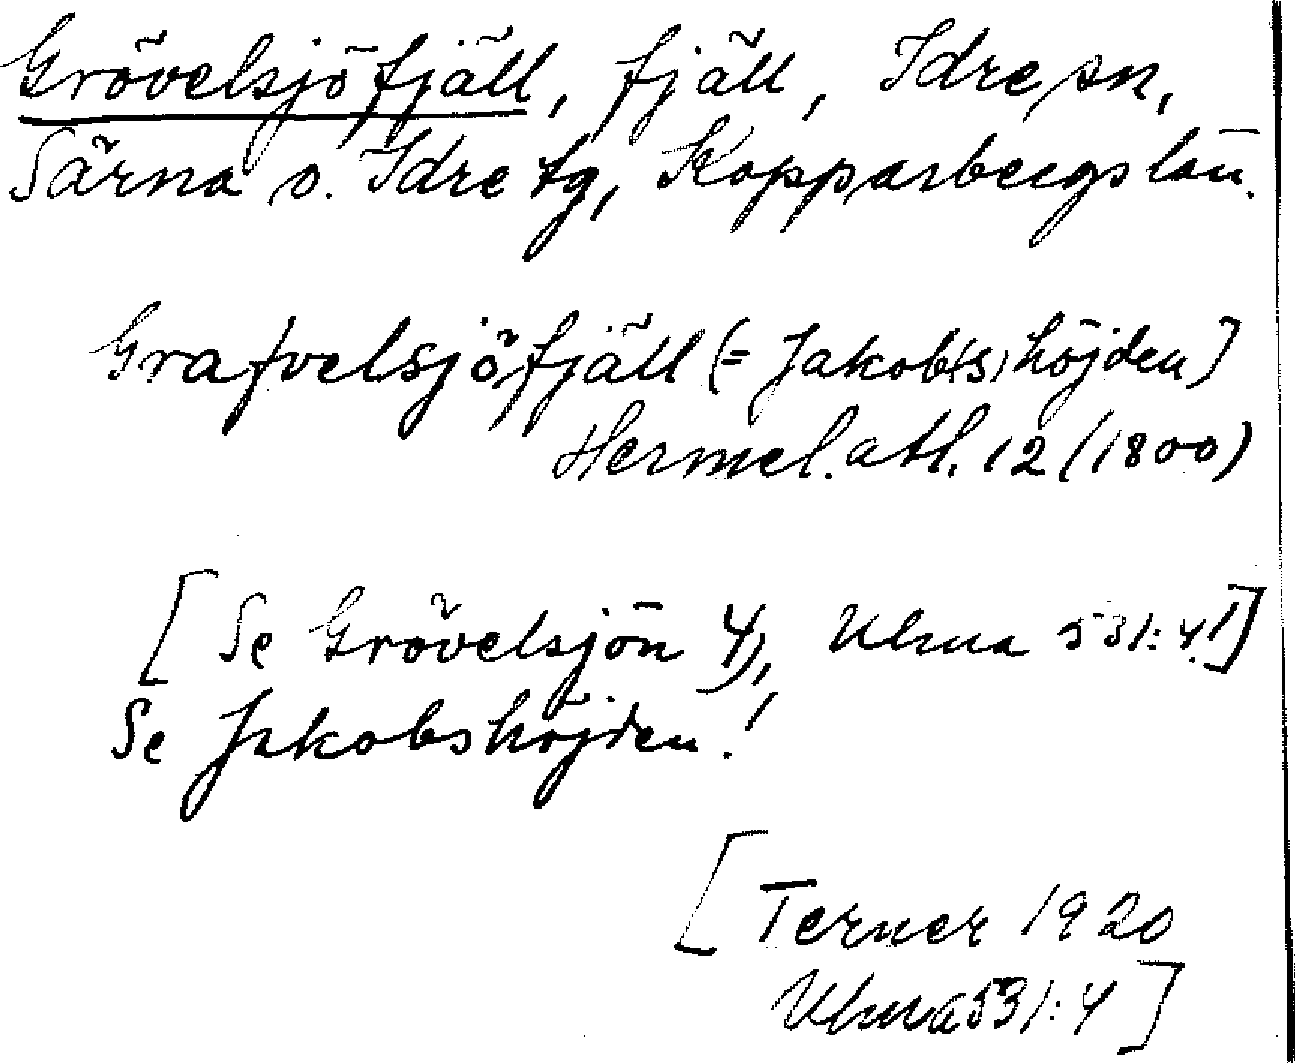 Grövelsjöfjäll, fjäll, Idre sn,
Särna o. Idre tg, Kopparbergs län.
Grafvelsjöfjäll (= Jakob(s)höjden]
Hermel. atl. 12 (1800)
[Se Grövelsjön 4), Ulma 531:4!]
Se Jakobshöjden!
[Terner 1920
Ulma 531:4]